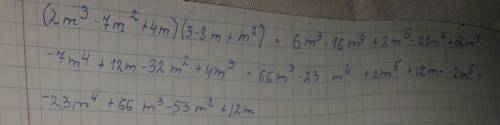 (2m³ - 7m² + 4m)(3 - 8m + m²) = 6m³ - 16m⁴ + 2m⁵ - 21m² + 56m³
- 7m⁴ + 12m - 32m² + 4m³ = 66m³ - 23m⁴ + 2m⁵ + 12m = 2m⁵ -
- 23m⁴ + 66m³ - 53m² + 12m